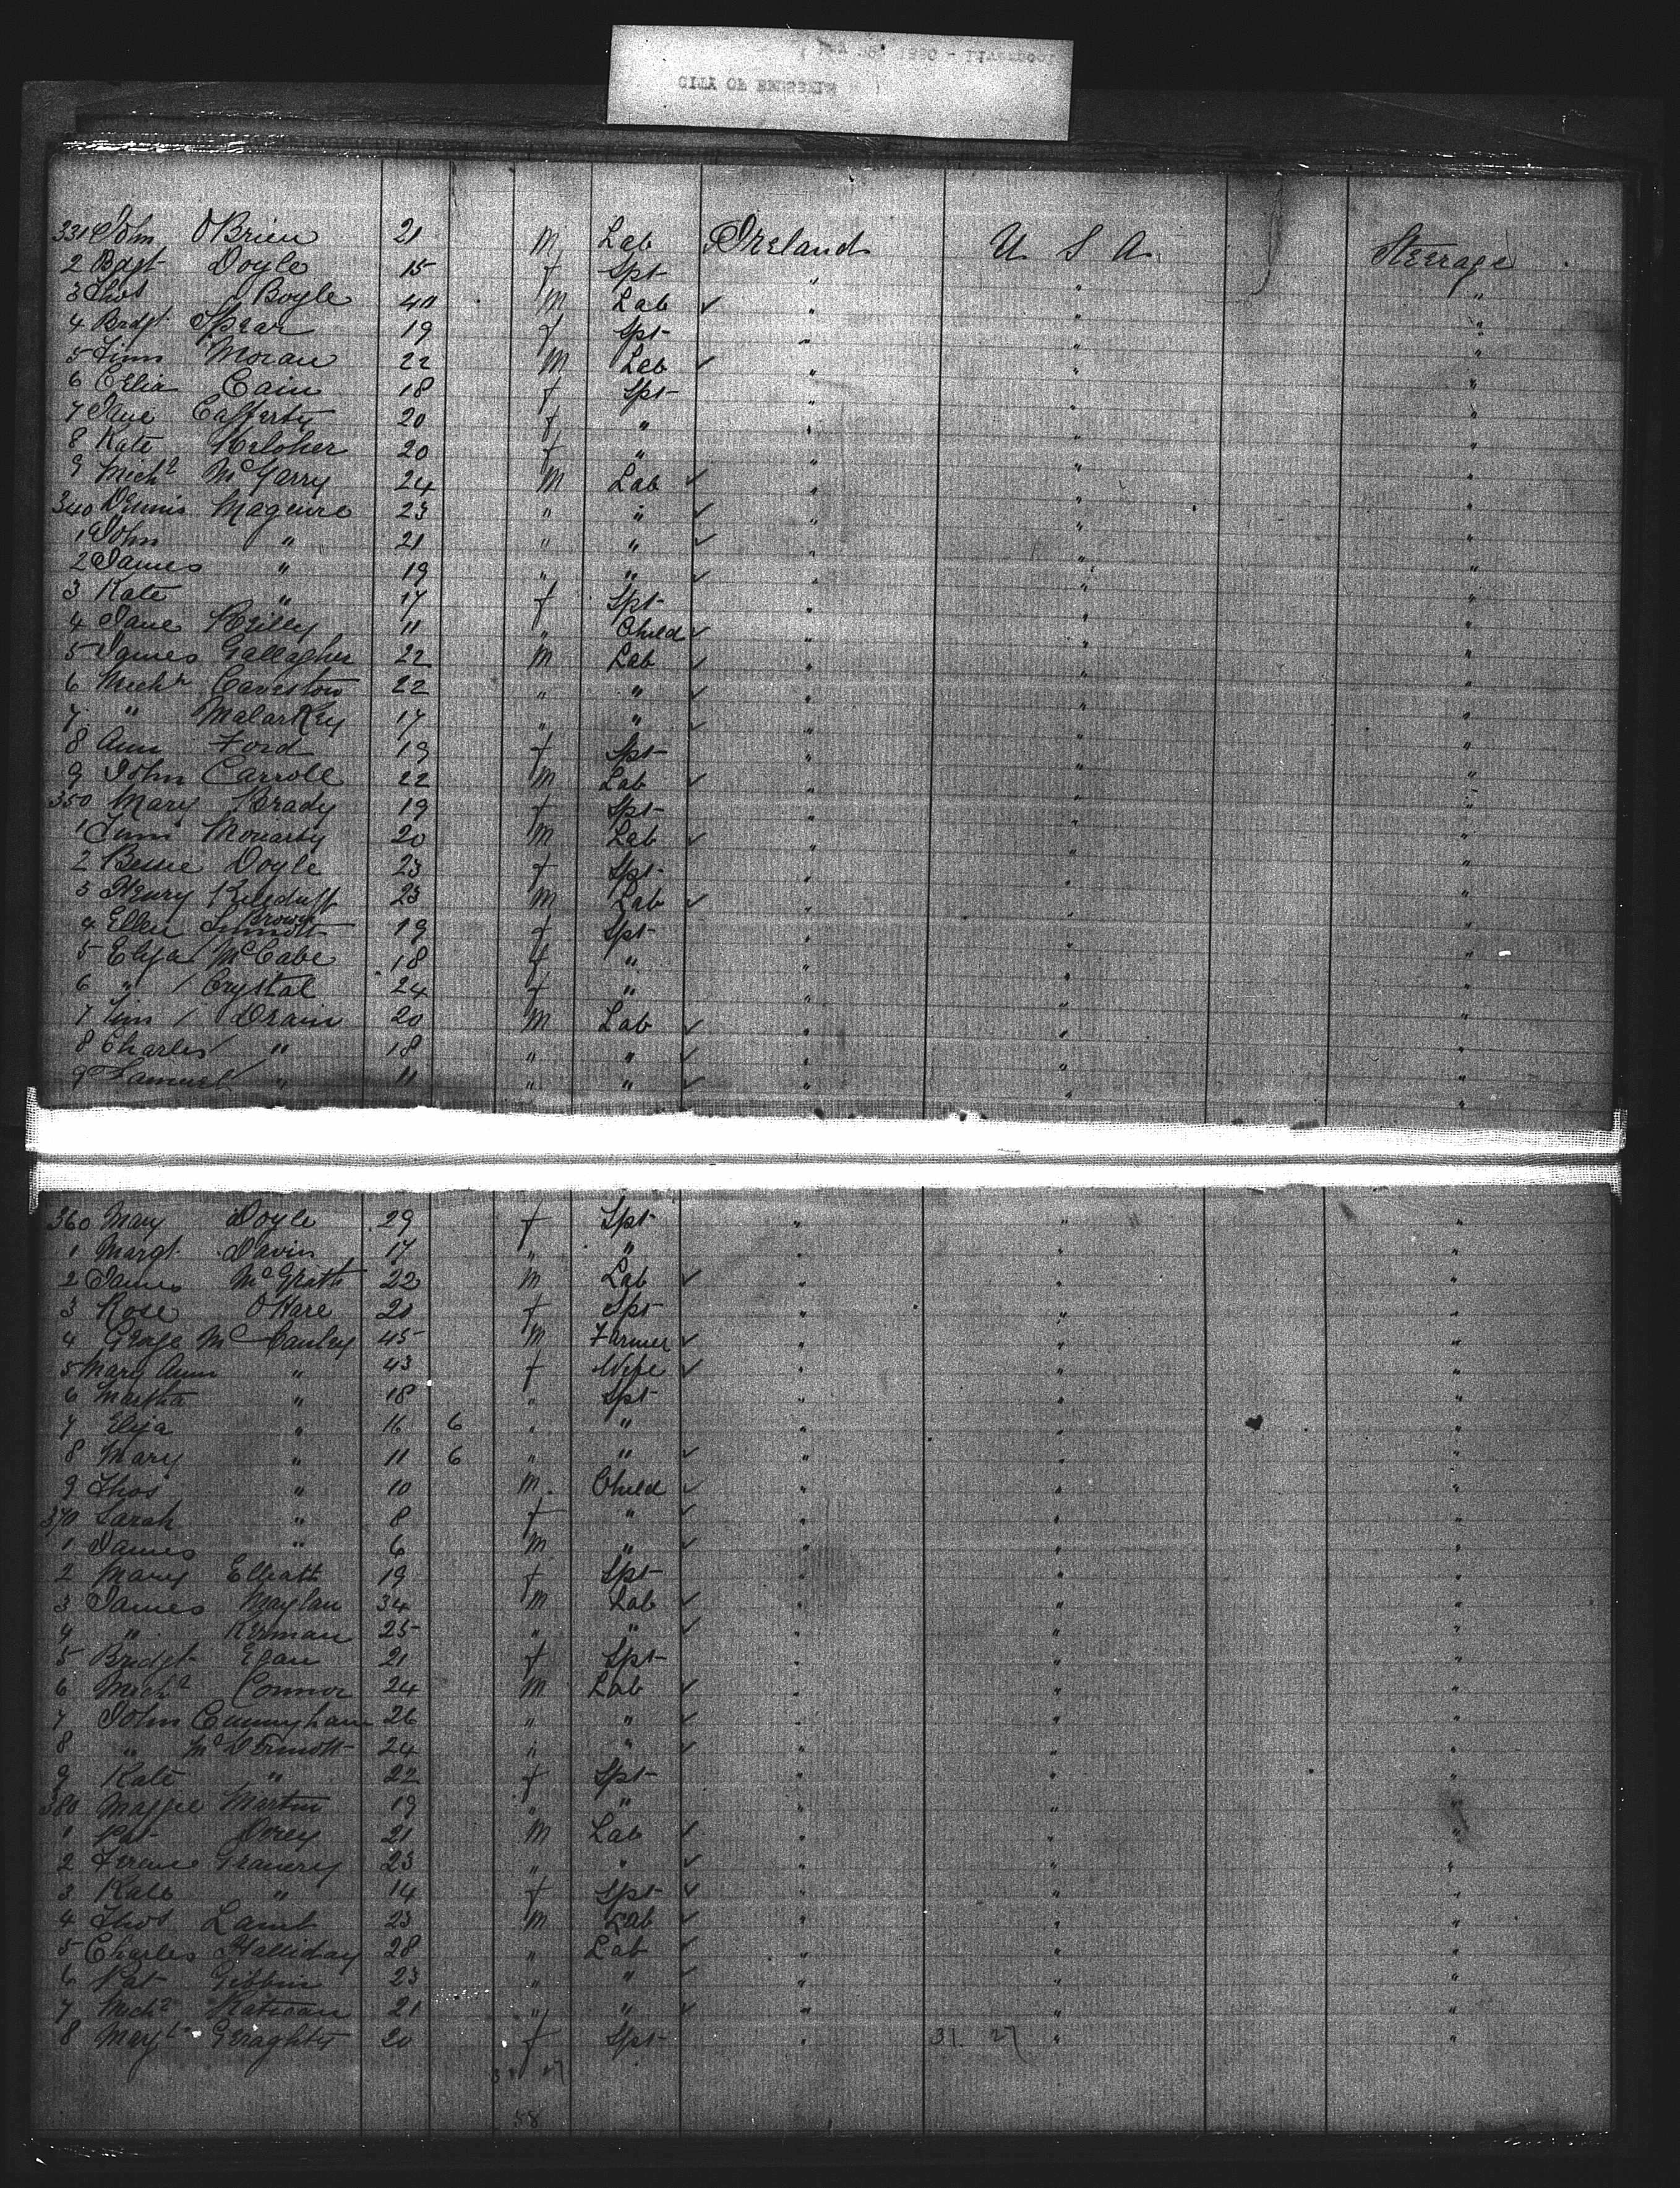 CITY OF
331 John O'Brien 21 M Lab Ireland U S A Steerage
2 Bdgt Doyle 15 f Spt " " "
3 Thos Boyle 40 M Lab ✓ " " "
4 Brdgt Spear 19 f Spt " " "
5 Jim Moran 22 M Lab ✓ " " "
6 Celia Cain 18 f Spt " " "
7 Jane Cafferty 20 f " " " "
8 Kate Keloher 20 f " " " "
9 Michl McGarry 24 M Lab ✓ " " "
340 Dennis Maguire 23 " " ✓ " " "
1 John " 21 " " ✓ " " "
2 James " 19 " " ✓ " " "
3 Kate " 17 f Spt " " "
4 Jane Reilly 11 " Child ✓ " " "
5 James Gallagher 22 M Lab ✓ " " "
6 Michl 22 " " ✓ " " "
7 " Malarkey 17 " " ✓ " " "
8 Ann Ford 19 f Spt " " "
9 John Carroll 22 M Lab ✓ " " "
350 Mary Brady 19 f Spt " " "
1 Moriarty 20 M Lab ✓ " " "
2 Bessie Doyle 23 f Spt " " "
3 Henry Kilduff 23 M Lab ✓ " " "
4 Ellen Brown 19 f Spt " " "
5 Eliza McCabe 18 f " " " "
6 " Crystal 24 f " " " "
7 Jim Drain 20 M Lab ✓ " " "
8 Charles " 18 " " ✓ " " "
9 Samuel " 11 " " ✓ " " "
360 Mary Doyle 29 f Spt " " "
1 Margt Davin 17 " " " " "
2 James McGrath 22 M Lab ✓ " " "
3 Rose O'Hare 21 f Spt " " "
4 George McCauley 45 M Farmer ✓ " " "
5 Mary Ann " 43 f Wife ✓ " " "
6 Martha " 18 " Spt " " "
7 Eliza " 16 6 " " " " "
8 Mary " 11 6 " " ✓ " " "
9 Thos " 10 M Child ✓ " " "
370 Sarah " 8 f " ✓ " " "
1 James " 6 M " ✓ " " "
2 Mary Elliott 19 f Spt " " "
3 James Maylan 34 M Lab ✓ " " "
4 " Kerman 25 " " ✓ " " "
5 Bridgt Egan 21 f Spt " " "
6 Michl Connor 24 M Lab ✓ " " "
7 John Cunnyham 26 " " ✓ " " "
8 " McDermott 24 " " ✓ " " "
9 Kate " 22 f Spt " " "
380 Maggie Martin 19 " " " " "
1 Pat Dorey 21 M Lab ✓ " " "
2 23 " " ✓ " " "
3 Kate " 14 f Spt ✓ " " "
4 Thos Lamb 23 M Lab ✓ " " "
5 Charles Halliday 28 " Lab ✓ " " "
6 Pat Gibbin 23 " " ✓ " " "
7 Michl 21 " " ✓ " " "
8 Geraghty 20 f Spt " 31 27 " "
58